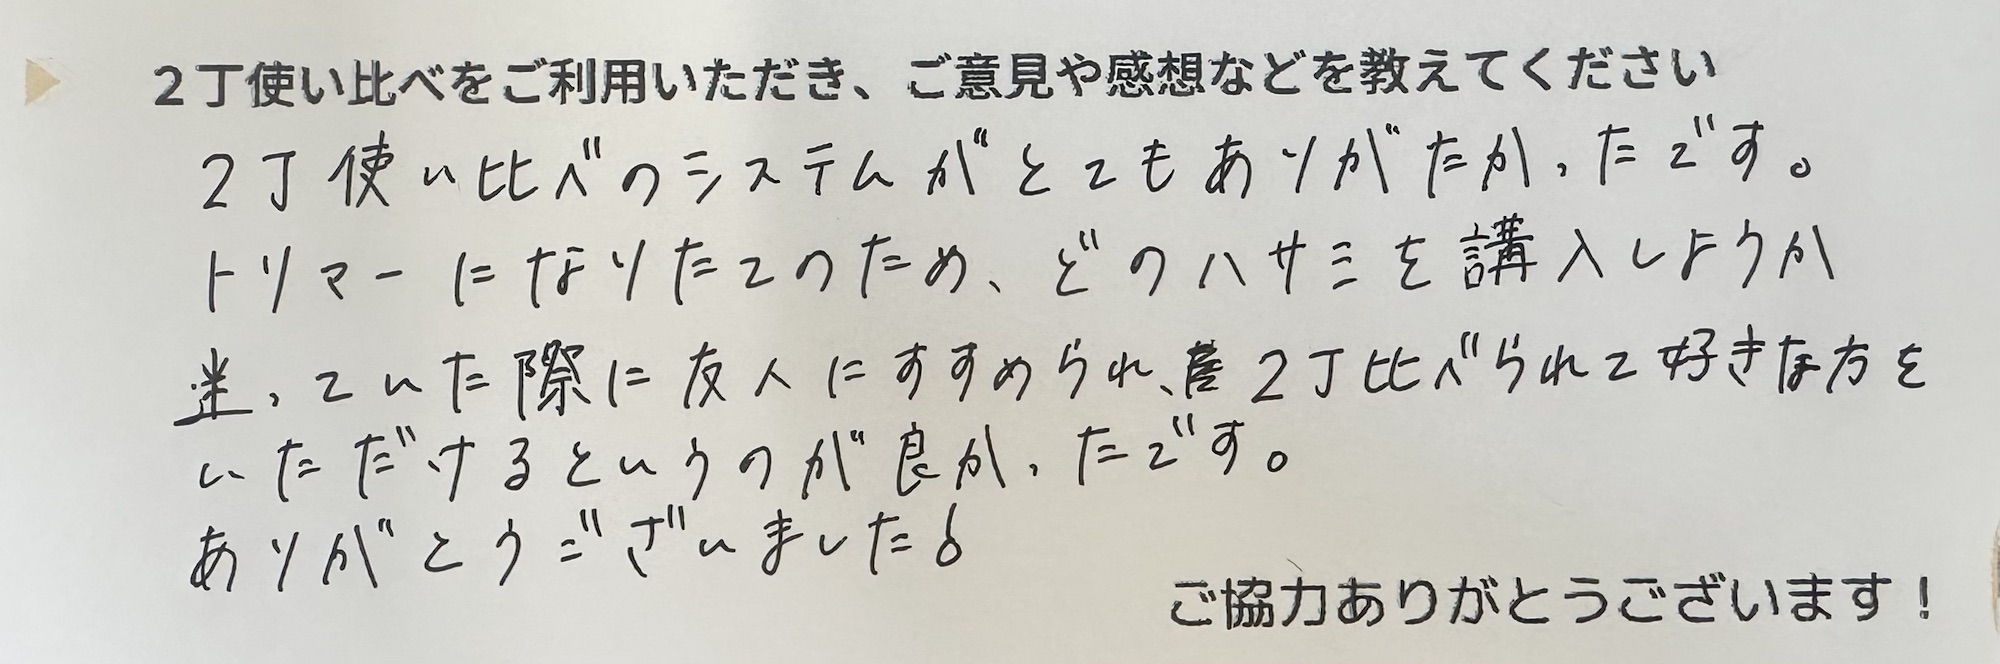 2丁使い比べをご利用いただき、ご意見や感想などを教えてください
2丁使い比べのシステムがとてもありがたかったです。
トリマーになりたてのため、どのハサミを講入しようか
迷っていた際に友人にすすめられ、2丁比べられて好きな方を
いただけるというのが良かったです。
ありがとうございました!
ご協力ありがとうございます!